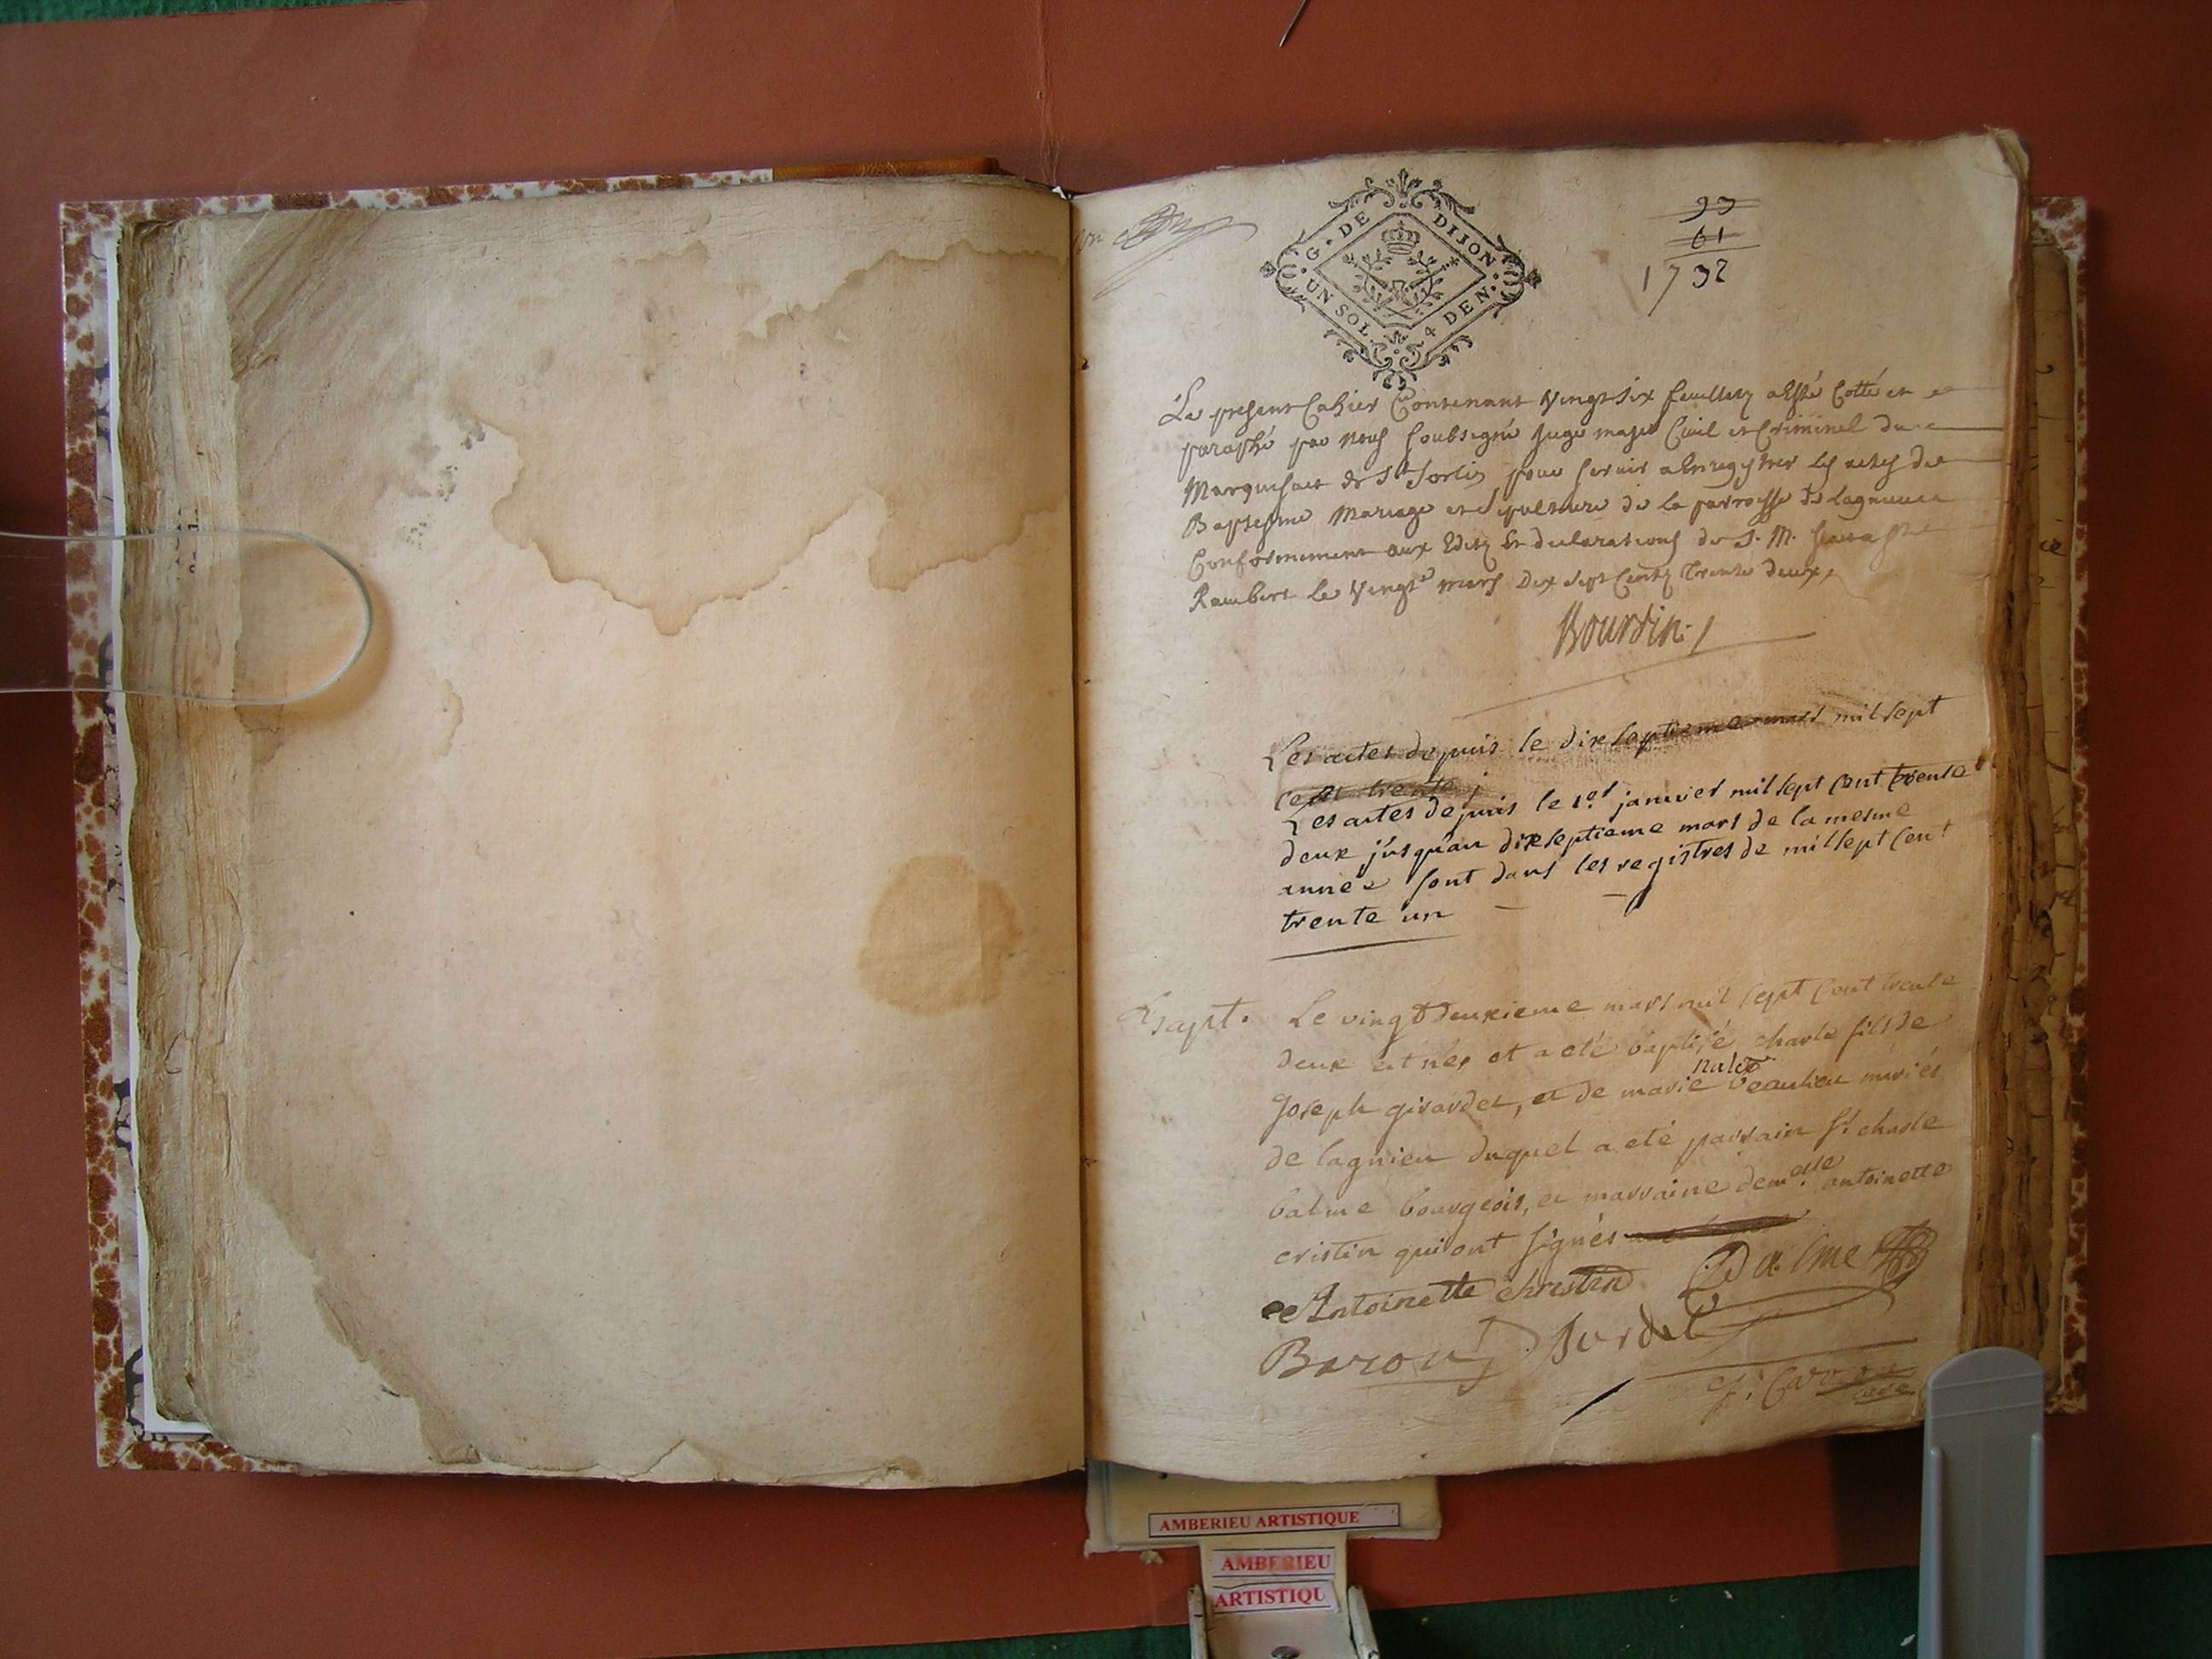 G. DE DIJON
UN SOL. 4 DEN.
33
61
1732
Le present Cahier Contenant vingt six feuillets a esté Cotté et
paraphé par nous soubsigné Juge maje Civil et Criminel du
Marquisat de St Sorlin pour servir a Enregistrer les actes de
Baptesme Mariage et Sepulture de la parroisse de Lagnieu
Conformement aux Edits Et declarations de S. M. St
Rambert le Vingt mars Dix sept Cents trente deux,
Bourdin
Les actes depuis le dixseptieme mars mil sept
cent trente ;
Les actes depuis le 1er janvier mil sept cent trente
deux jusqu'au dixseptieme mars de la mesme
année sont dans les registres de mil sept cent
trente un
Bapt. Le vingtdeuxieme mars mil sept cent trente
deux est né, et a eté baptisé charle fils de
nalet
Joseph girardet, et de marie beaulieu mariés
de lagnieu duquel a eté parrain Sr. charle
balme bourgeois, et marraine demelle antoinette
cristin qui ont signés
Antoinette christin Balme
Baron Jurdet